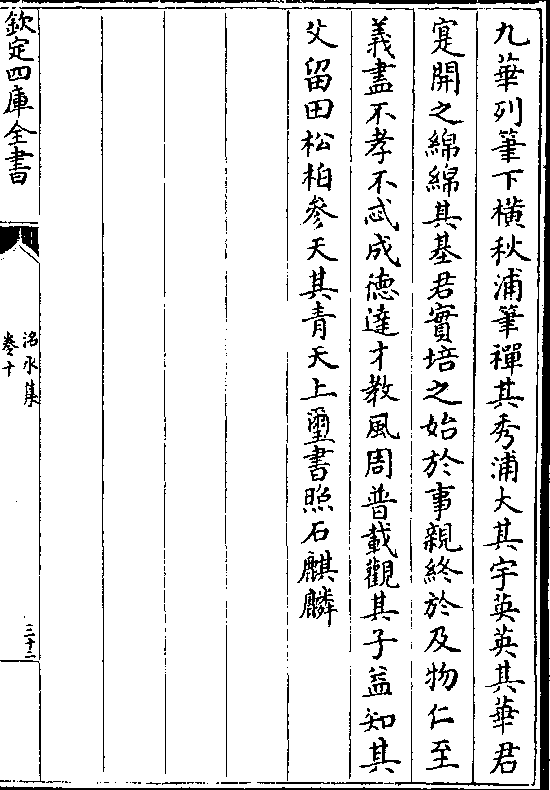 九華列筆下横秋浦筆禪其秀浦大其宇英英其華君
寔開之綿綿其基君實培之始於事親終於及物仁至
義盡不孝不忒成徳達才教風周普載觀其子益知其
父留田松柏參天其青天上璽書照石麒麟
欽定四庫全書
洺水集
卷十
三十二